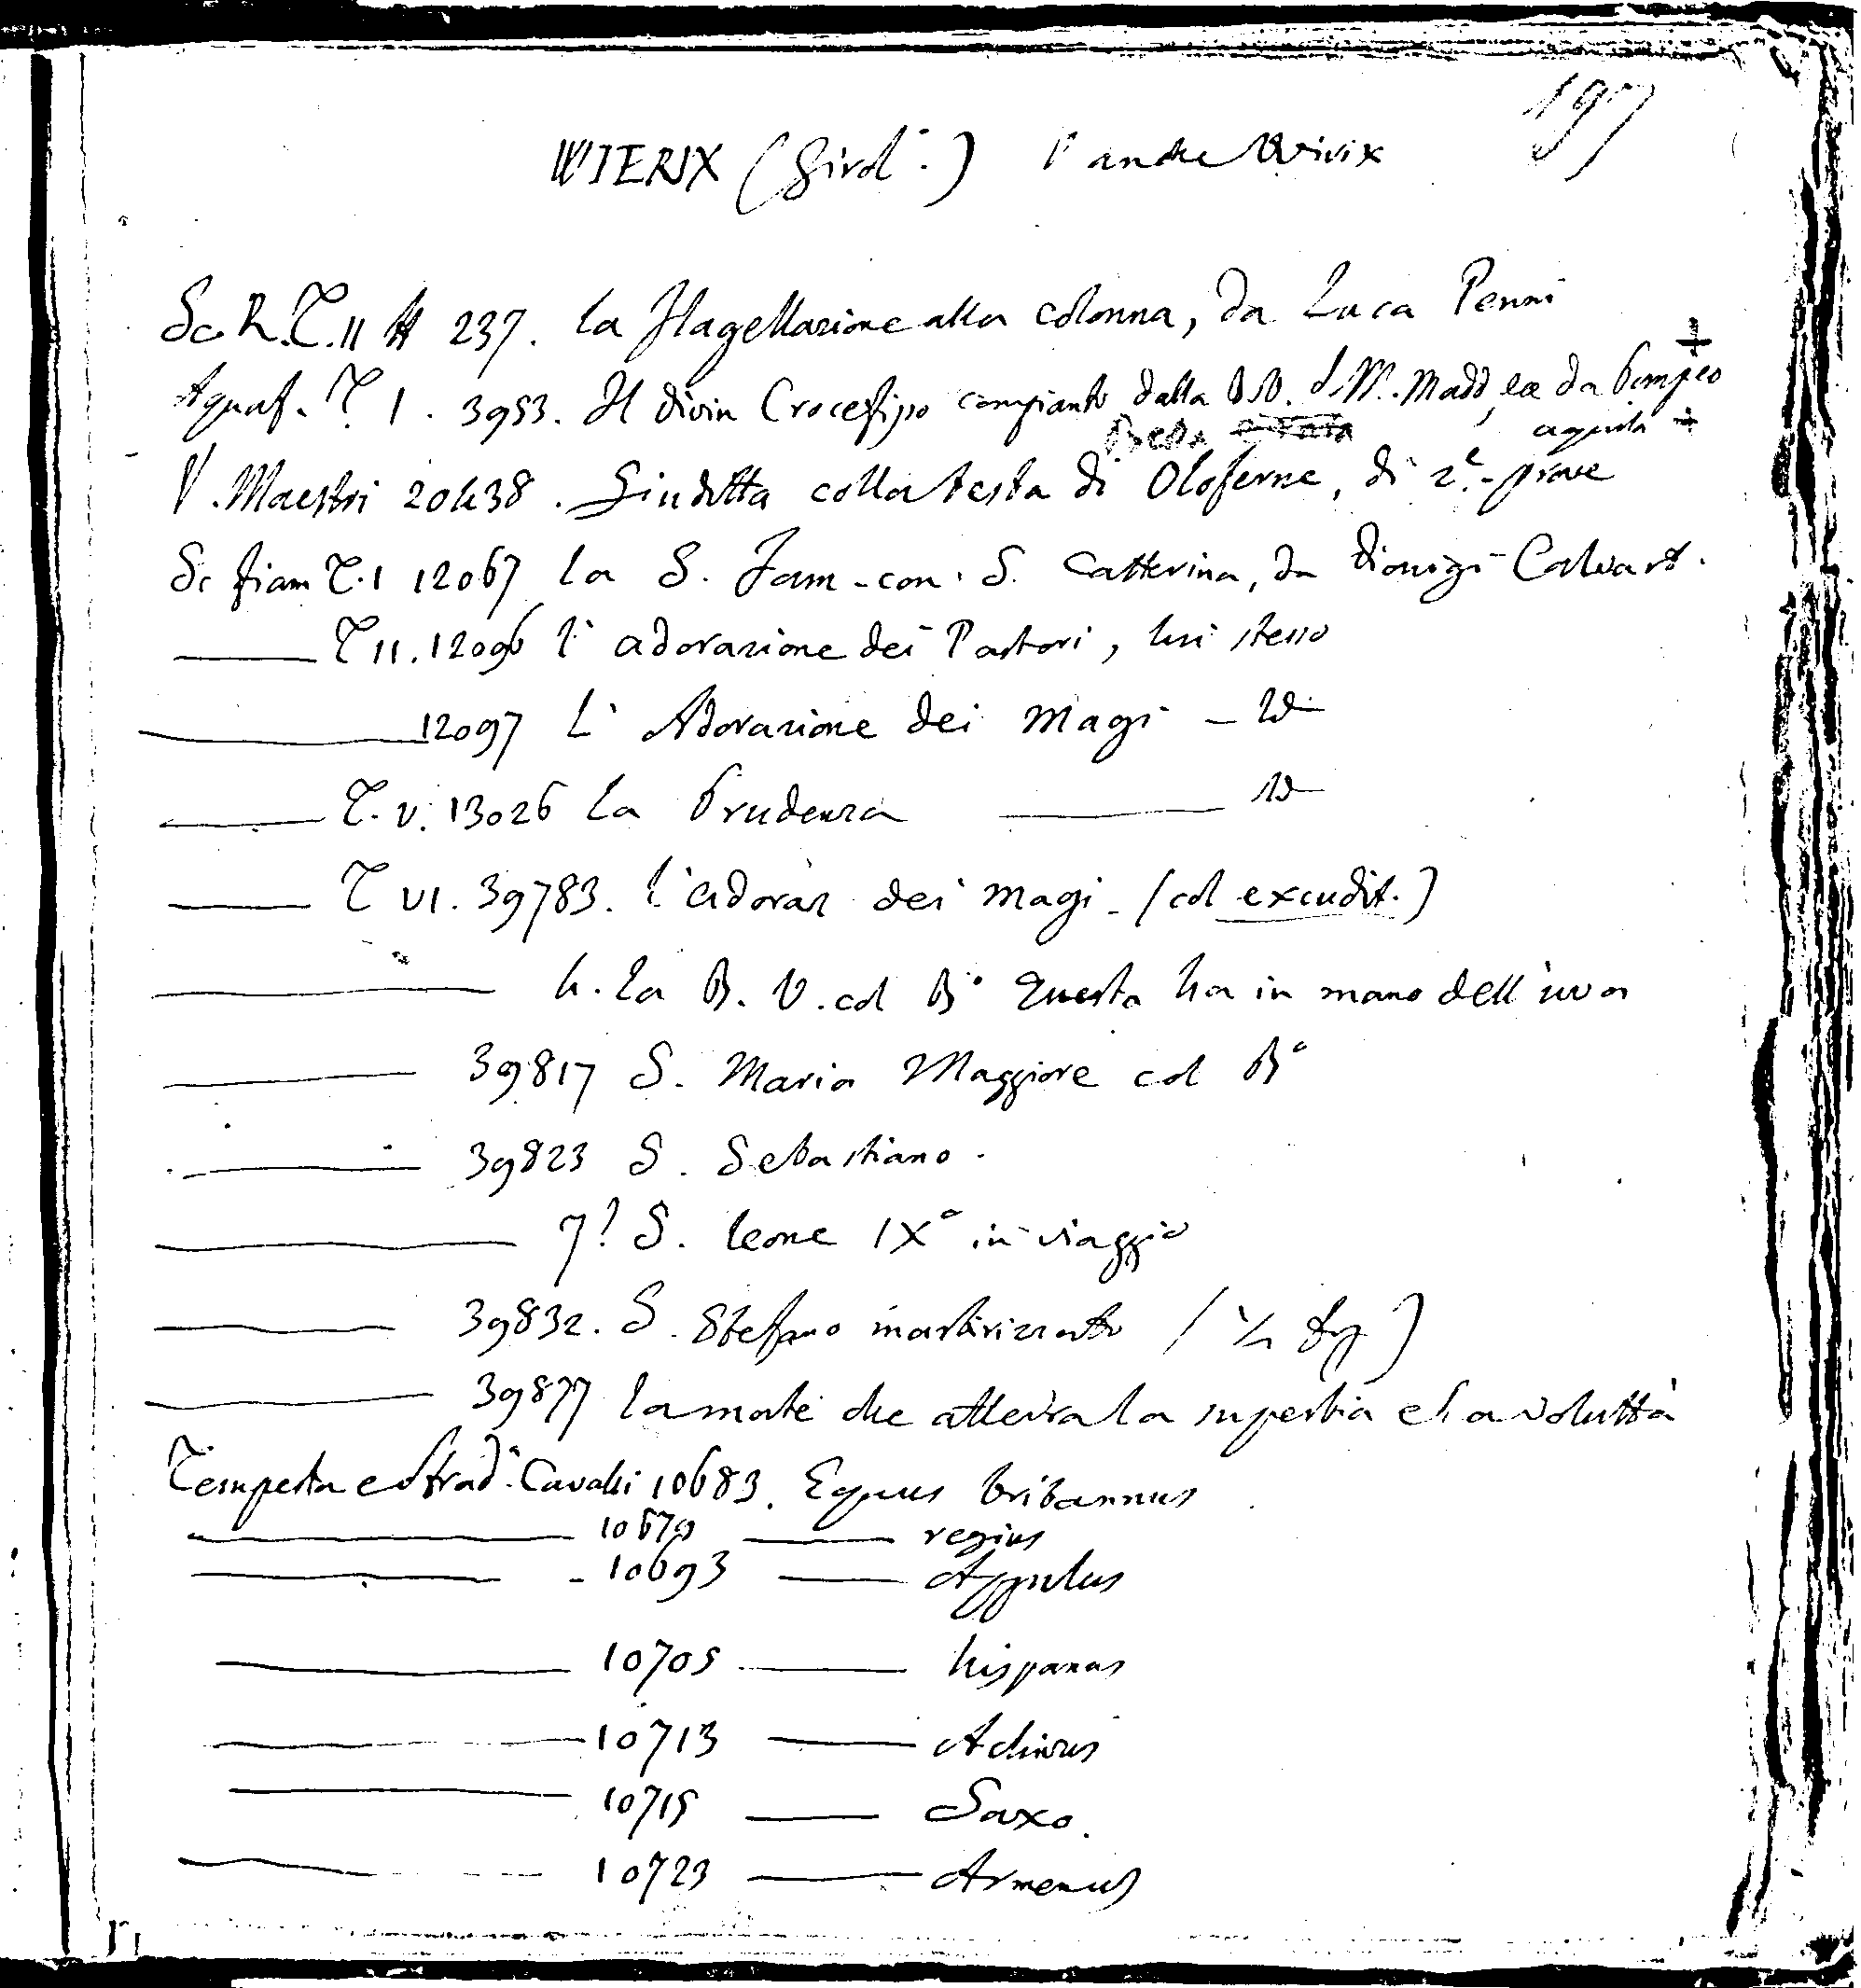 197
WIERIX (Girol.°) V anche Wirix
Sc. R. T. II # 237. la Flagellazione alla colonna, da Luca Penni
Aquaf. T. I. 3953. Il divin Crocefisso compianto dalla B.V. da Pompeo +
Bella aquila +
V. Maestri 20438. Giuditta colla testa di Oloferne, di 2.e prove
Sc fiam T. I 12067 la S. Fam. con. S. Catterina, da Dionigi Calvart.
T II. 12096 l'adorazione dei Pastori, lui stesso
12097 L'Adorazione dei Magi - Id
T. V. 13026 La Prudenza Id
T VI. 39783. l'adoraz dei magi - (col excudit.)
4. La B. V. col B° Questa ha in mano dell'uva
39817 S. Maria Maggiore col B°
39823 S. Sebastiano.
7? S. Leone IX° in viaggio
39832. S. Stefano martirizzato (½ fig)
39877 La morte che atterra la superbia e la voluttà
Tempesta e Strad.° Cavalli 10683. Equus britannus
10679 regius
10693 Appulus
10705 hispanus
10713
10715 Saxo.
10723 Armenus